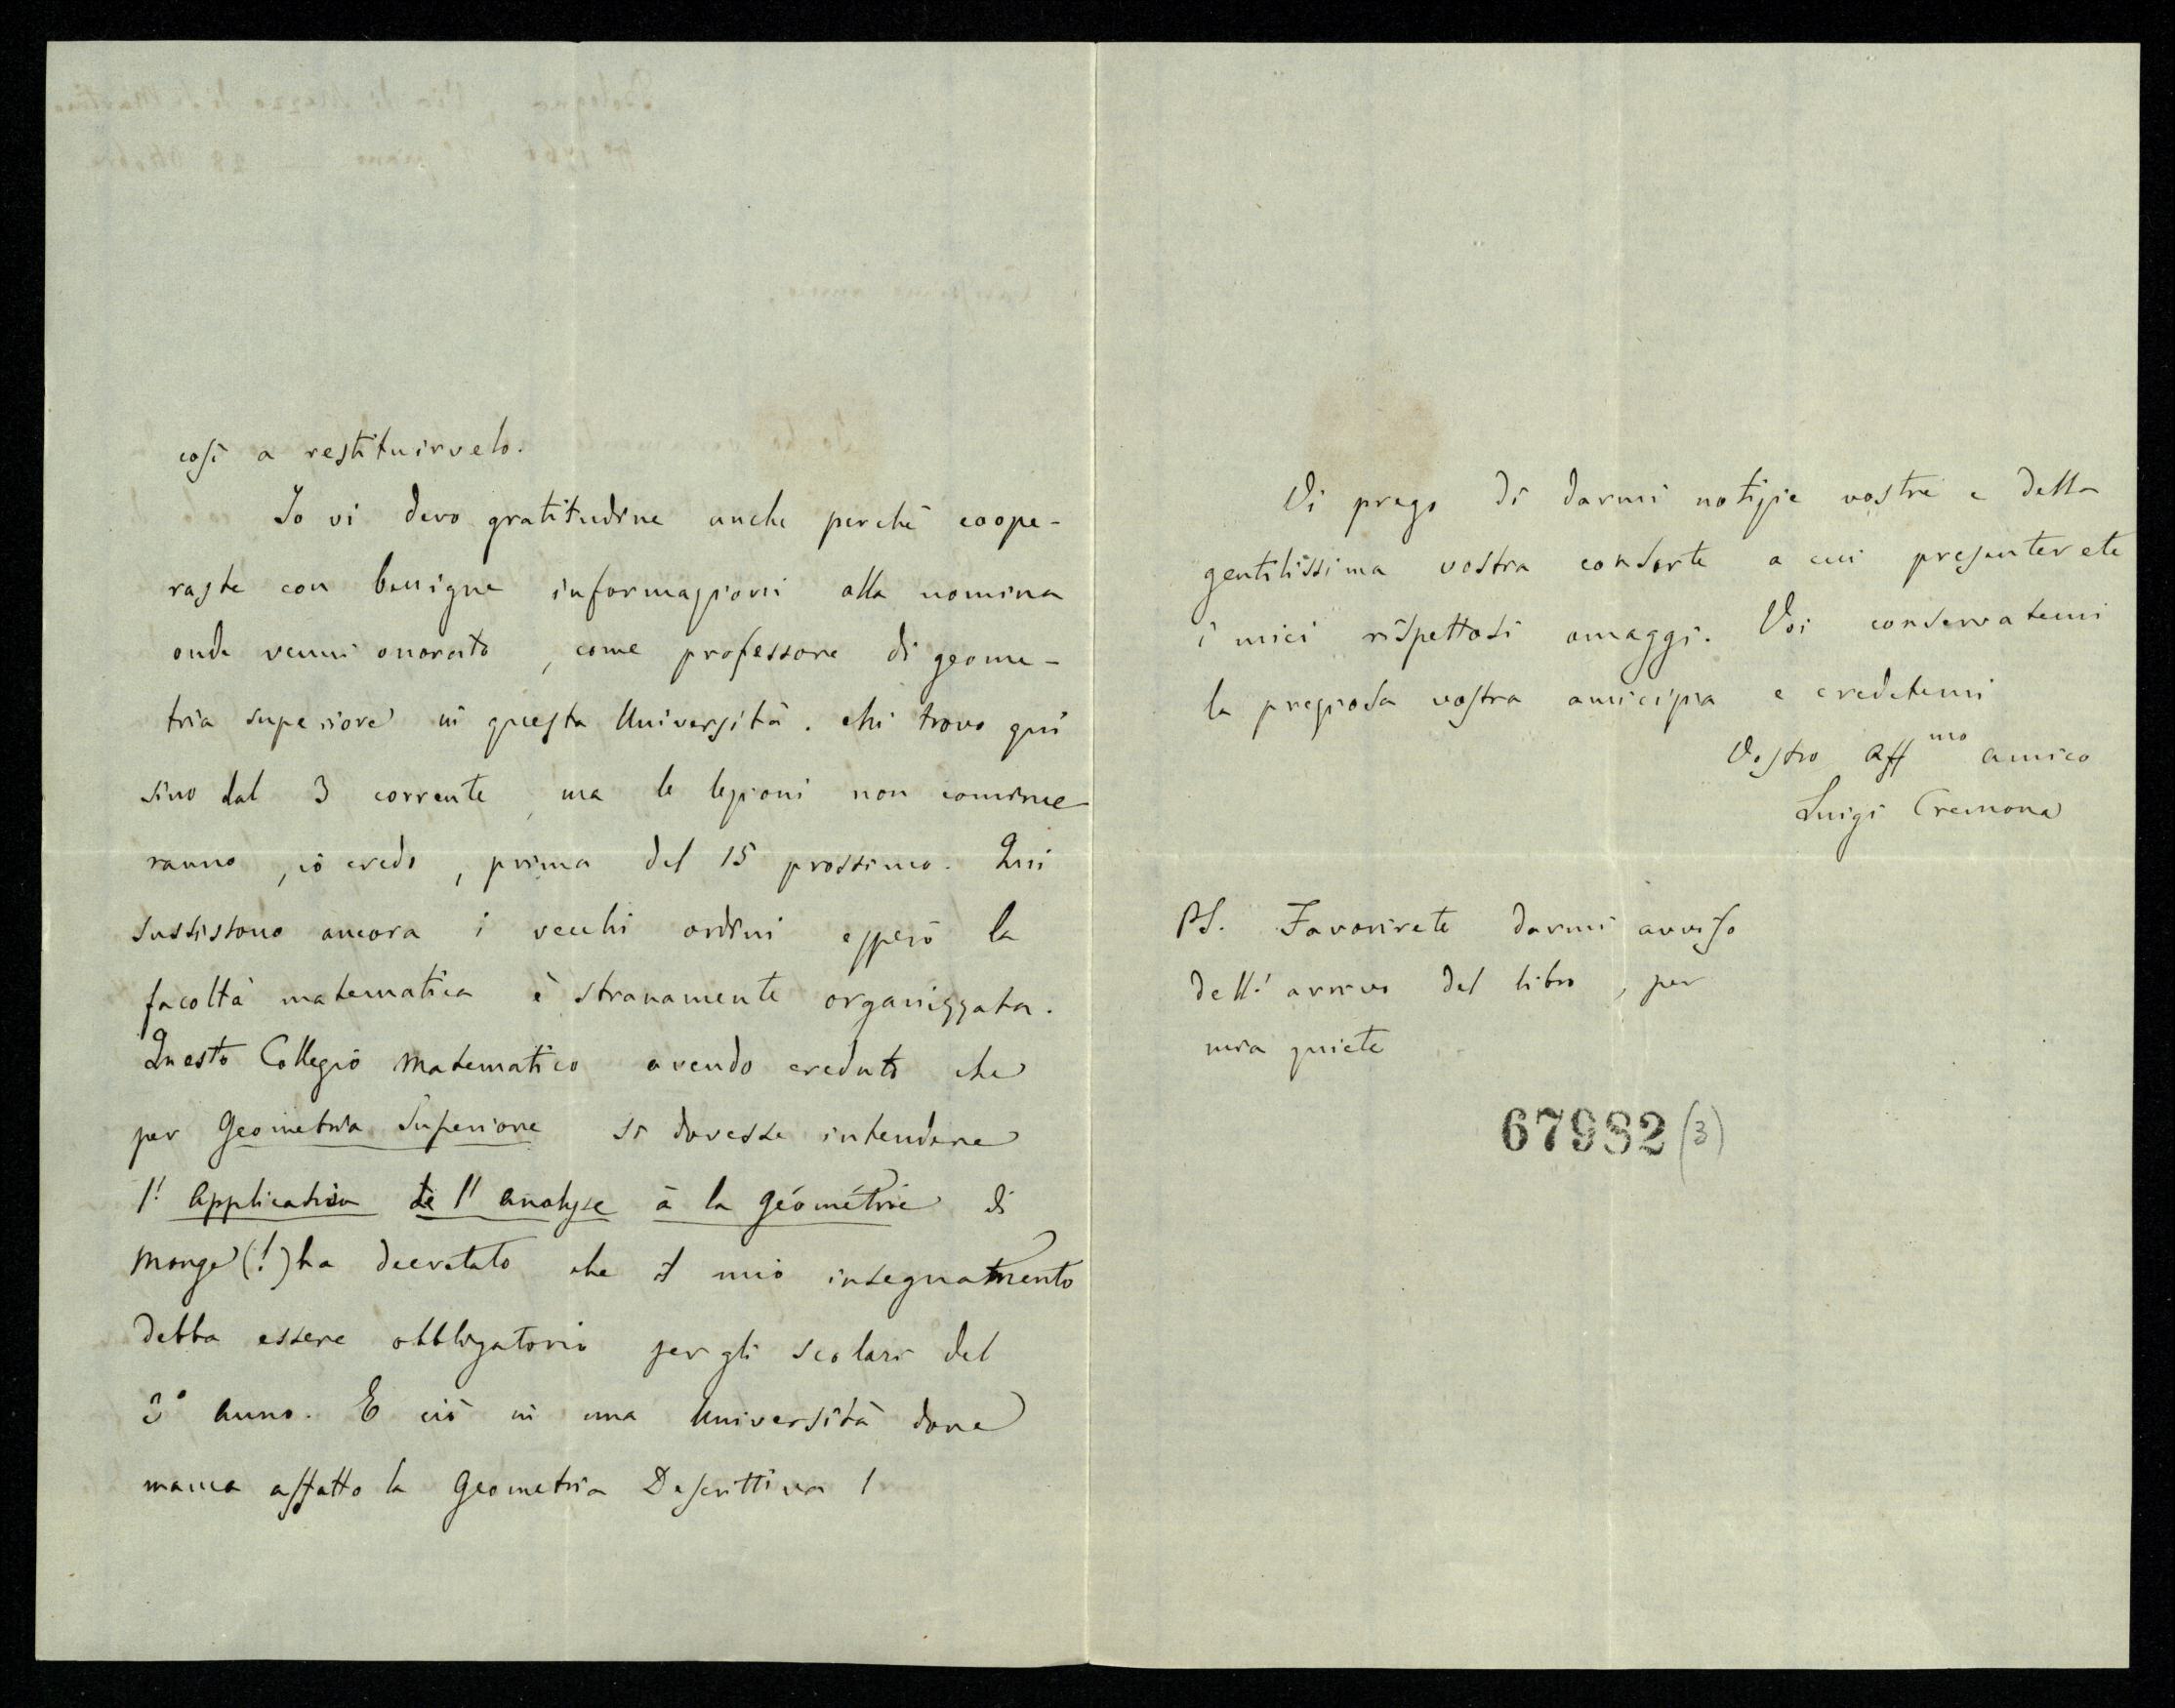 così a restituirvelo.
Io vi devo gratitudine anche perchè coope-
raste con benigne informazioni alla nomina
onde venni onorato, come professore di geome-
tria superiore in questa Università. Mi trovo quì
sino dal 3 corrente, ma le lezioni non comince
ranno, io credo, prima del 15 prossimo. Qui
sussistono ancora i vecchi ordini epperò la
facoltà matematica è stranamente organizzata.
Questo Collegio Matematico avendo creduto che
per Geometria Superiore si dovesse intendere
l'Application de l'Analyse à la Géométrie di
Monge (!) ha decretato che il mio insegnamento
debba essere obbligatorio per gli scolari del
3° anno. E ciò in una Università dove
manca affatto la Geometria Descrittiva!
Vi prego di darmi notizie vostre e della
gentilissima vostra consorte a cui presenterete
i miei rispettosi omaggi. Voi conservatemi
la preziosa vostra amicizia e credetemi
Vostro Aff mo amico
Luigi Cremona
PS. Favorirete darmi avviso
dell'arrivo del libro, per
mia quiete
67982 (3)